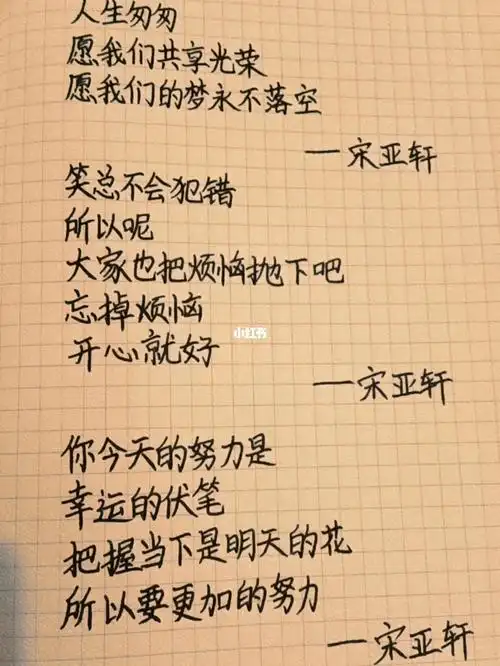 人生匆匆
愿我们共享光荣
愿我们的梦永不落空
一宋亚轩
笑总不会犯错
所以呢
大家也把烦恼抛下吧
忘掉烦恼
小红书
开心就好
一宋亚轩
你今天的努力是
幸运的伏笔
把握当下是明天的花
所以要更加的努力
一宋亚轩